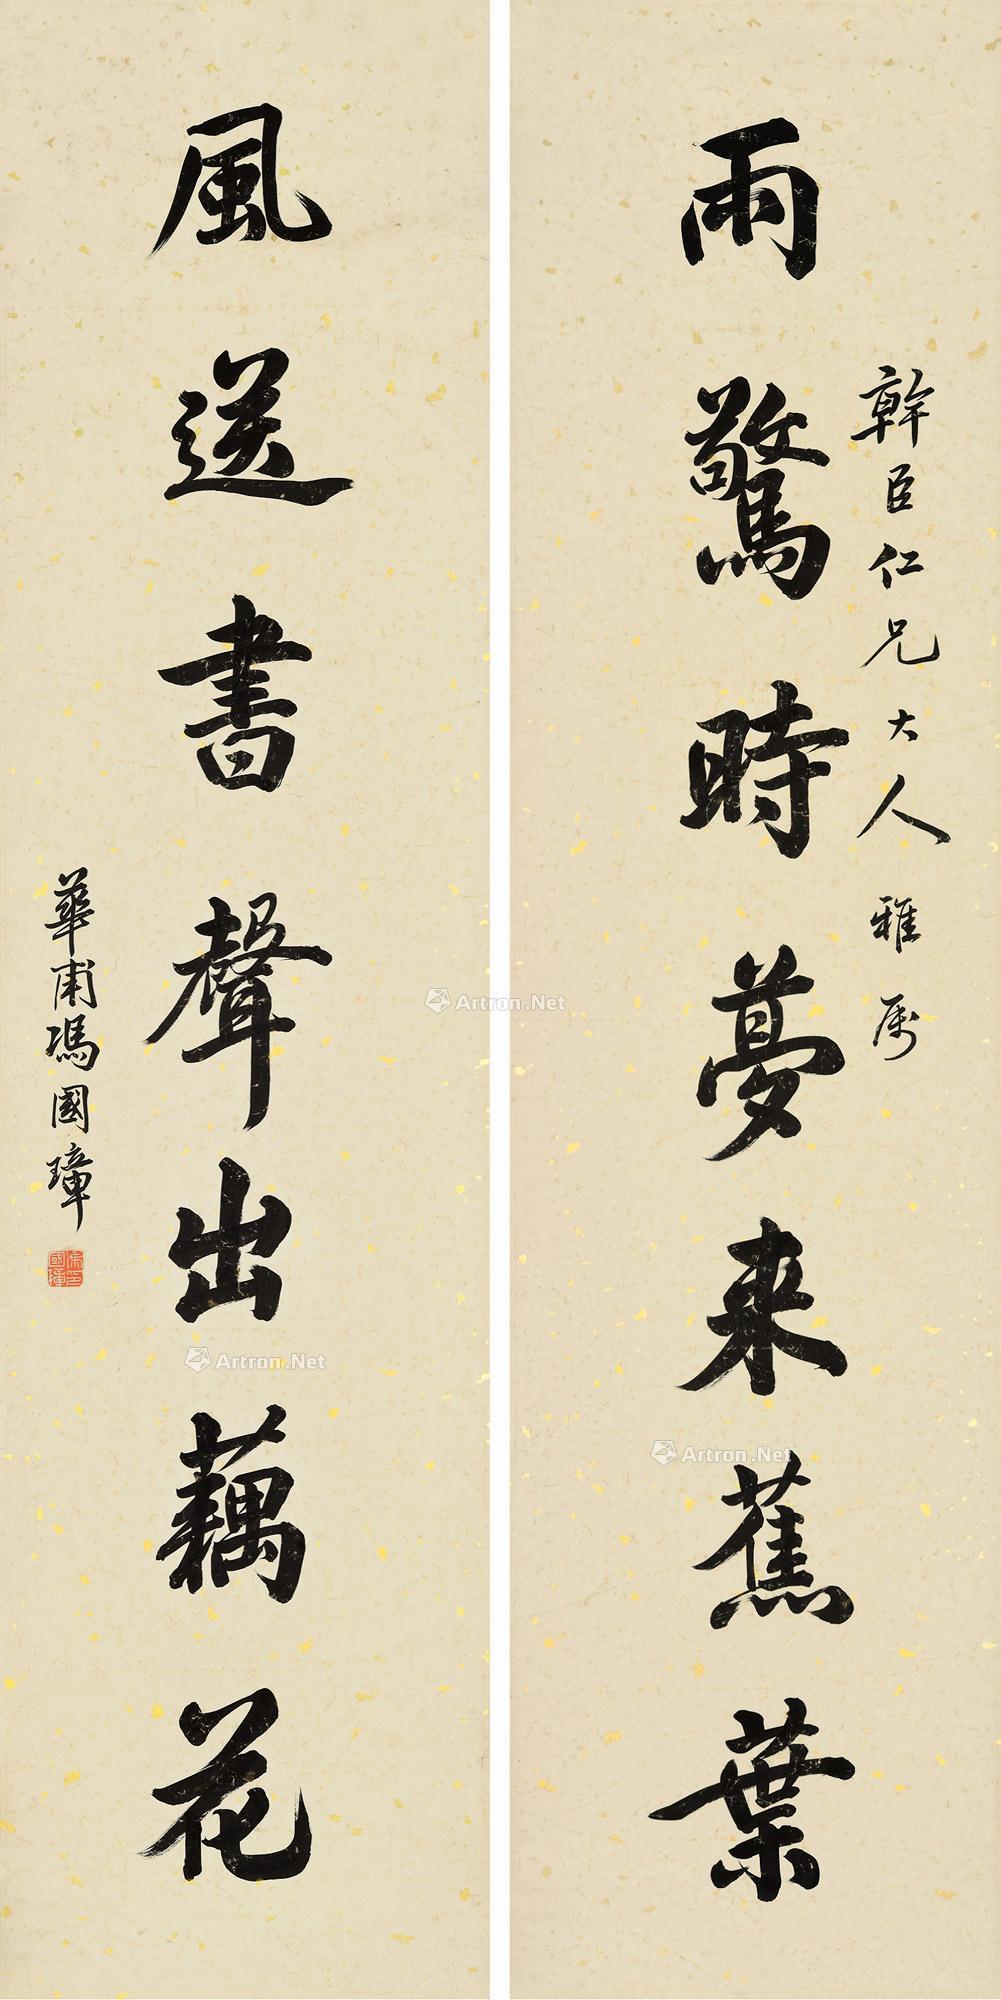 雨驚時夢来蕉葉
幹臣仁兄大人雅属
風送書聲出藕花
華甫馮國璋
馮國璋印
Artron.Net
Artron.Net
Artron.Net